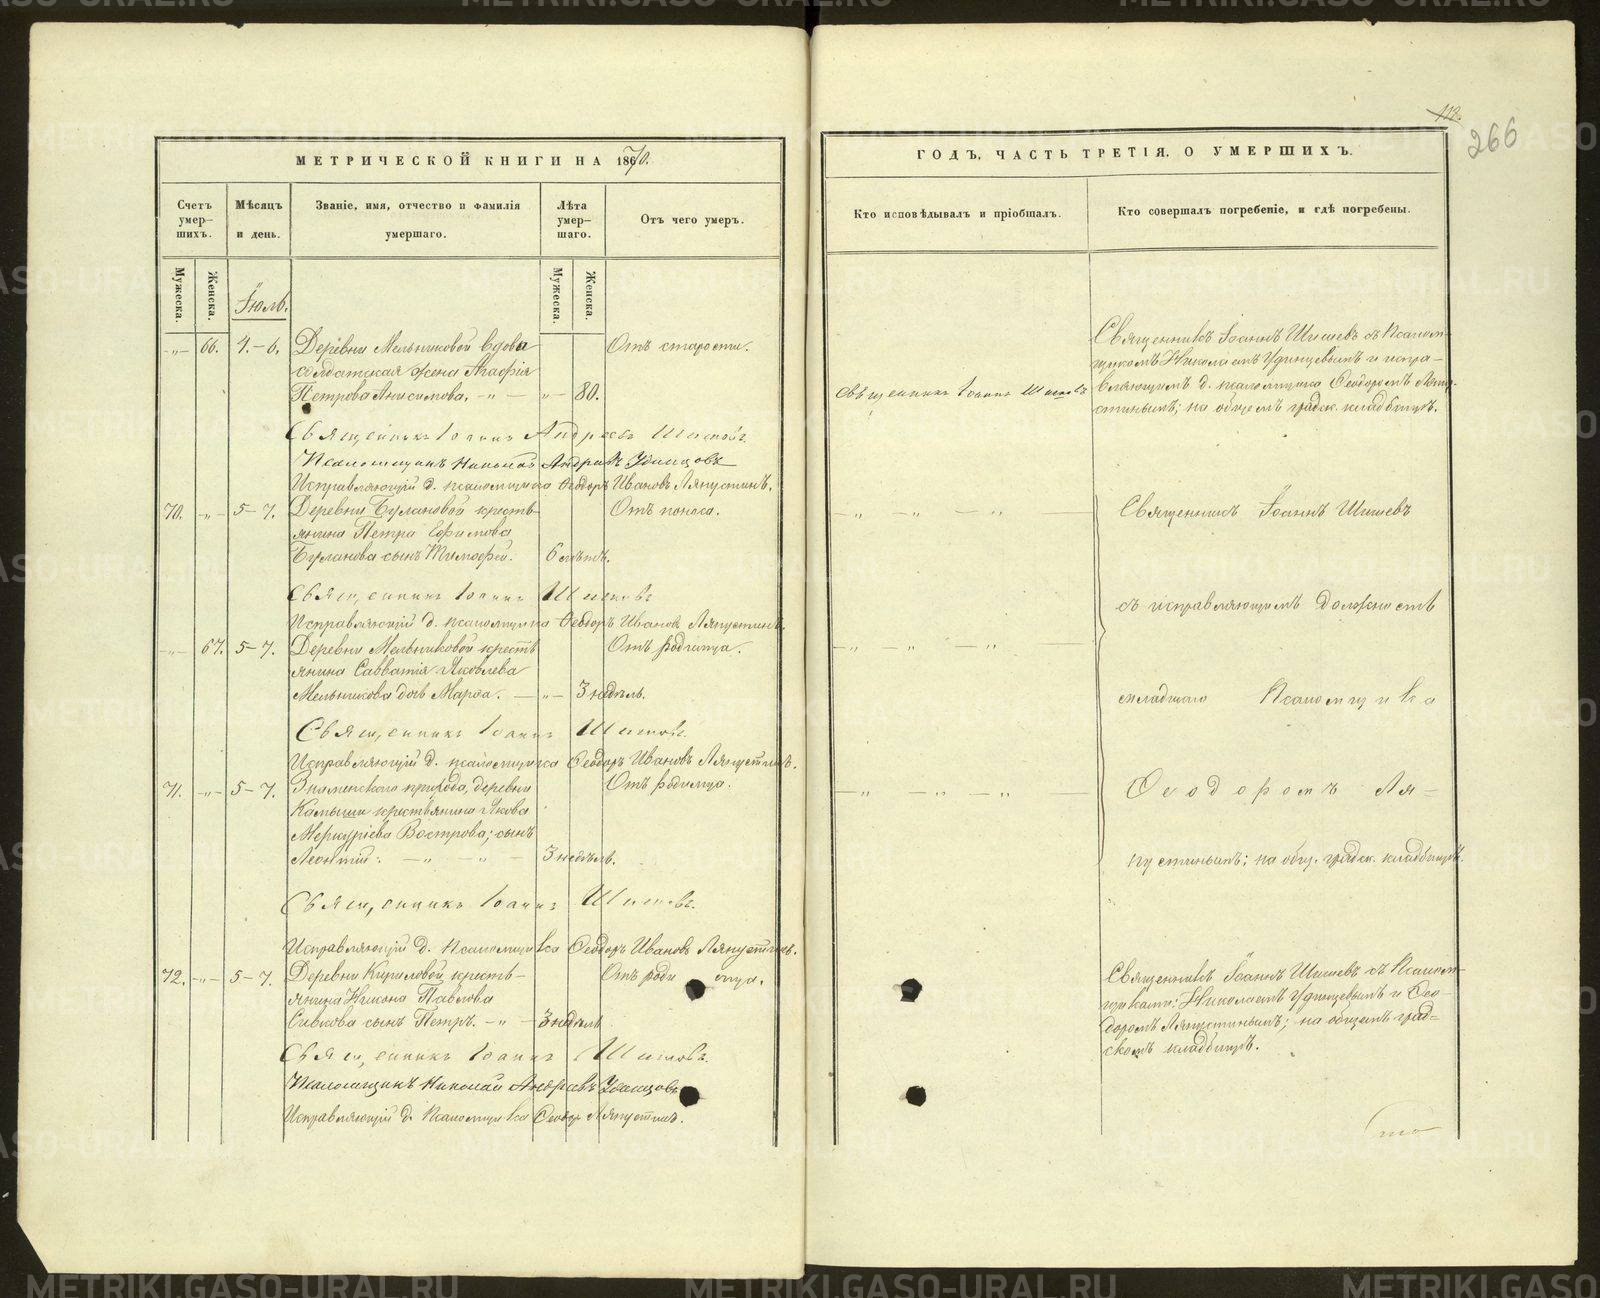 МЕТРИЧЕСКОЙ КНИГИ НА 1870.
Счетъ умер-шихъ.
Мѣсяцъ и день.
Званіе, имя, отчество и фамилія умершаго.
Лѣта умер-шаго.
Отъ чего умеръ.
Мужеска.
Женска.
Мужеска.
Женска.
Іюль.
-„- 66. 4.-6. Деревни Мельниковой вдова Отъ старости.
солдатская жена Агафія
Петрова Анисимова. -„- — „- 80.
Священникъ Іоаннъ Андреевъ Шишевъ
Псаломщикъ Николай Андреевъ Удинцовъ
Исправляющій д. псаломщика Ѳеодоръ Ивановъ Ляпустинъ.
70. -„- 5-7. Деревни Булановой кресть- Отъ поноса.
янина Петра Ефимова
Буланова сынъ Тимофей. 6 лѣтъ.
Священникъ Іоаннъ Шишевъ
Исправляющій д. псаломщика Ѳеодоръ Ивановъ Ляпустинъ.
-„- 67. 5-7. Деревни Мельниковой кресть Отъ родимца.
янина Савватія Яковлева
Мельникова дочь Марѳа. — -„- 3 недѣль.
Священникъ Іоаннъ Шишевъ
Исправляющій д. псаломщика Ѳеодоръ Ивановъ Ляпустинъ.
71. -„- 5-7. Знаменского прихода, деревни Отъ родимца.
Камыши крестьянина Якова
Меркуріева Вострова; сынъ
Леонтій. — „ — „ — 3 недѣль.
Священникъ Іоаннъ Шишевъ.
Исправляющій д. Псаломщика Ѳеодоръ Ивановъ Ляпустинъ.
72. -„- 5-7. Деревни Кириловой кресть- Отъ родимца.
янина Никона Павлова
Сивкова сынъ Петръ. -„- 3 недѣль
Священникъ Іоаннъ Шишевъ.
Псаломщикъ Николай Андреевъ Удинцовъ
Исправляющій д. Псаломщика Ѳеодоръ Ляпустинъ.
112.
266
ГОДЪ, ЧАСТЬ ТРЕТІЯ, О УМЕРШИХЪ.
Кто исповѣдывалъ и пріобщалъ.
Кто совершалъ погребеніе, и гдѣ погребены.
Священникъ Іоаннъ Шишевъ
Священникъ Іоаннъ Шишевъ съ Псалом-
щикомъ Николаемъ Удинцевымъ и испра-
вляющимъ д. псаломщика Ѳеодоромъ Ляпу-
стинымъ; на общемъ градск. кладбищѣ.
— „ — „ — „ — Священникъ Іоаннъ Шишевъ
съ исправляющимъ должность
— „ — „ — „ —
младшаго Псаломщика
— „ — „ — „ — Ѳеодоромъ Ля=
пустинымъ; на общ. градск. кладбищѣ.
Священникъ Іоаннъ Шишевъ съ Псалом-
щиками: Николаемъ Удинцевымъ и Ѳео-
доромъ Ляпустинымъ; на общемъ град=
скомъ кладбищѣ.
METRIKI.GASO-URAL.RU